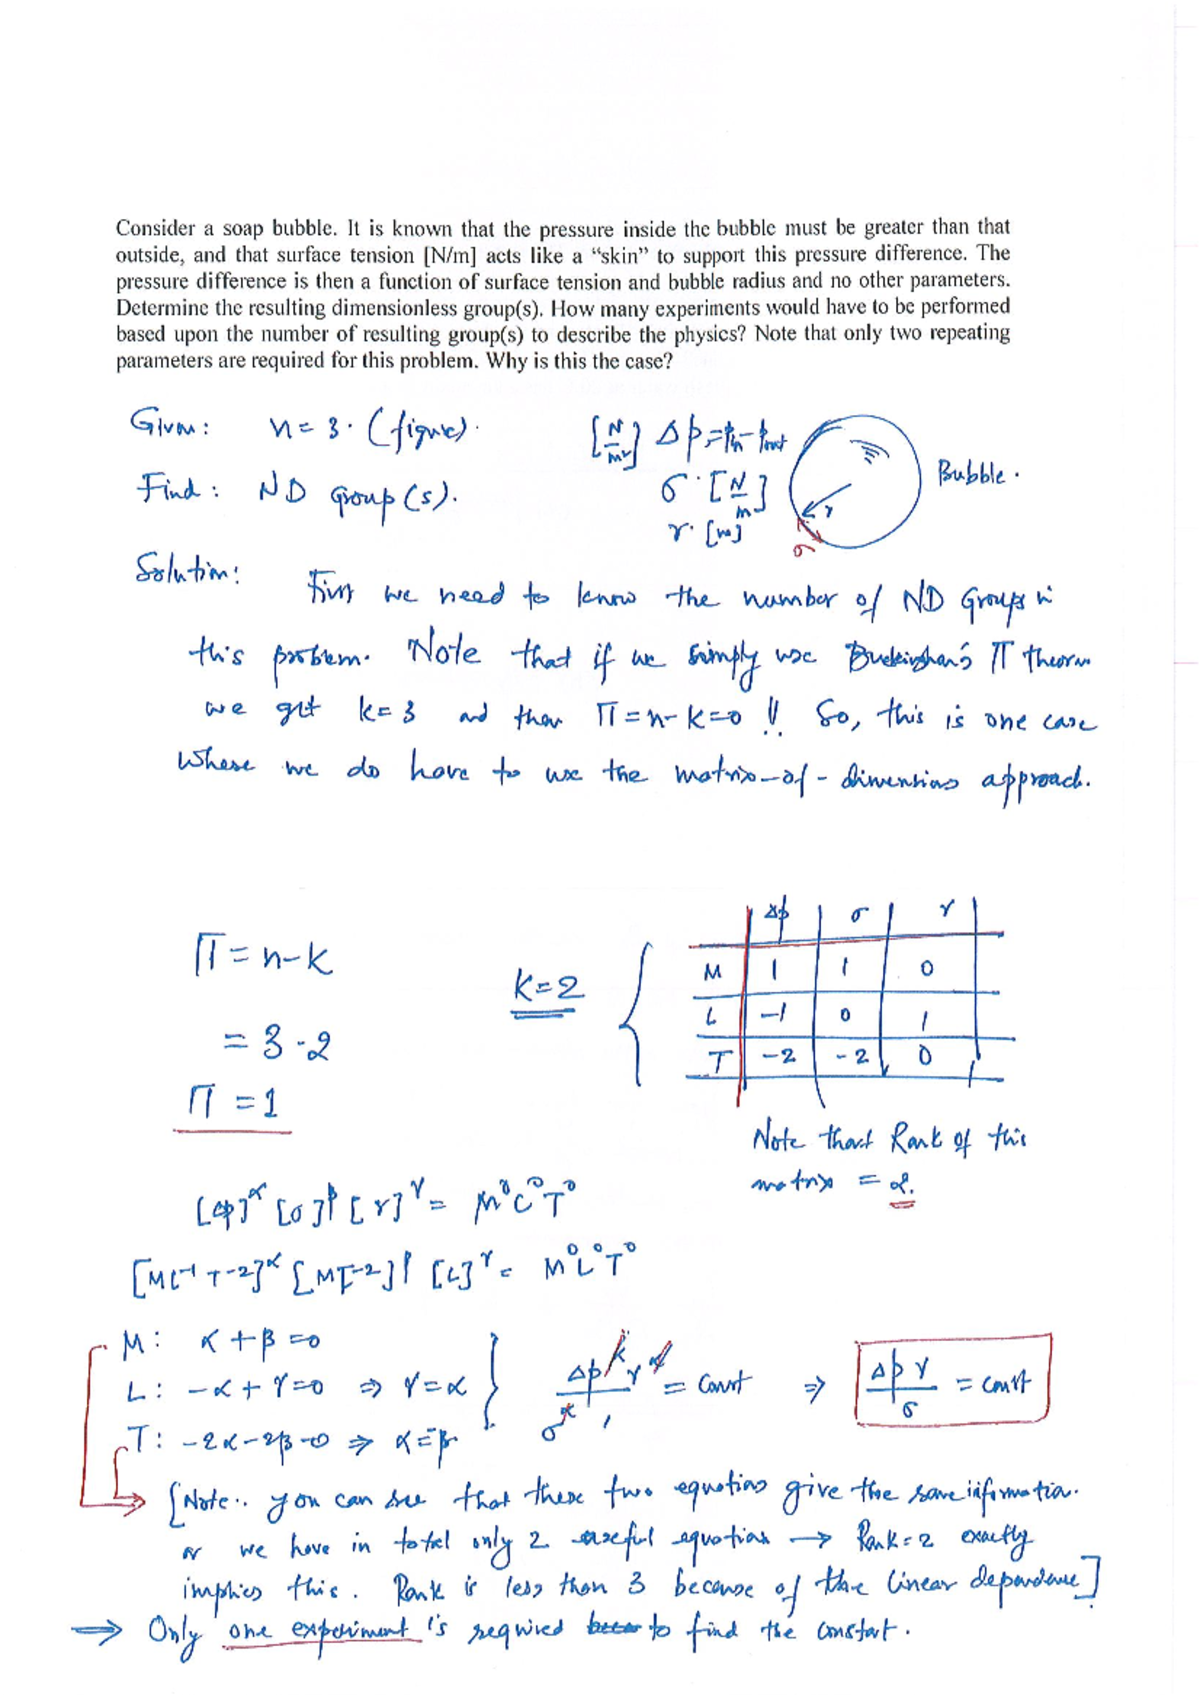 Consider a soap bubble. It is known that the pressure inside the bubble must be greater than that
outside, and that surface tension [N/m] acts like a “skin” to support this pressure difference. The
pressure difference is then a function of surface tension and bubble radius and no other parameters.
Determine the resulting dimensionless group(s). How many experiments would have to be performed
based upon the number of resulting group(s) to describe the physics? Note that only two repeating
parameters are required for this problem. Why is this the case?
Given: n = 3. (figure).
[N/m²] Δp = Pin - Pout
Find: ND group(s).
σ: [N/m]
r: [m]
r
σ
Bubble.
Solution: First we need to know the number of ND Groups in
this problem. Note that if we simply use Buckingham's Π theorem
we get k = 3 and then Π = n - k = 0 !! So, this is one case
where we do have to use the matrix-of-dimensions approach.
Δp σ r
Π = n - k
M 1 1 0
k = 2
L -1 0 1
= 3 - 2
T -2 -2 0
Π = 1
Note that Rank of this
matrix = 2.
[Δp]^α [σ]^β [r]^γ = M⁰L⁰T⁰
[ML⁻¹T⁻²]^α [MT⁻²]^β [L]^γ = M⁰L⁰T⁰
M: α + β = 0
L: -α + γ = 0 ⇒ γ = α
= Const ⇒ Δp r / σ = const
T: -2α - 2β = 0 ⇒ α = -β
[Note: you can see that these two equations give the same information.
or we have in total only 2 useful equations → Rank = 2 exactly
implies this. Rank is less than 3 because of the linear dependence]
⇒ Only one experiment is required to find the constant.